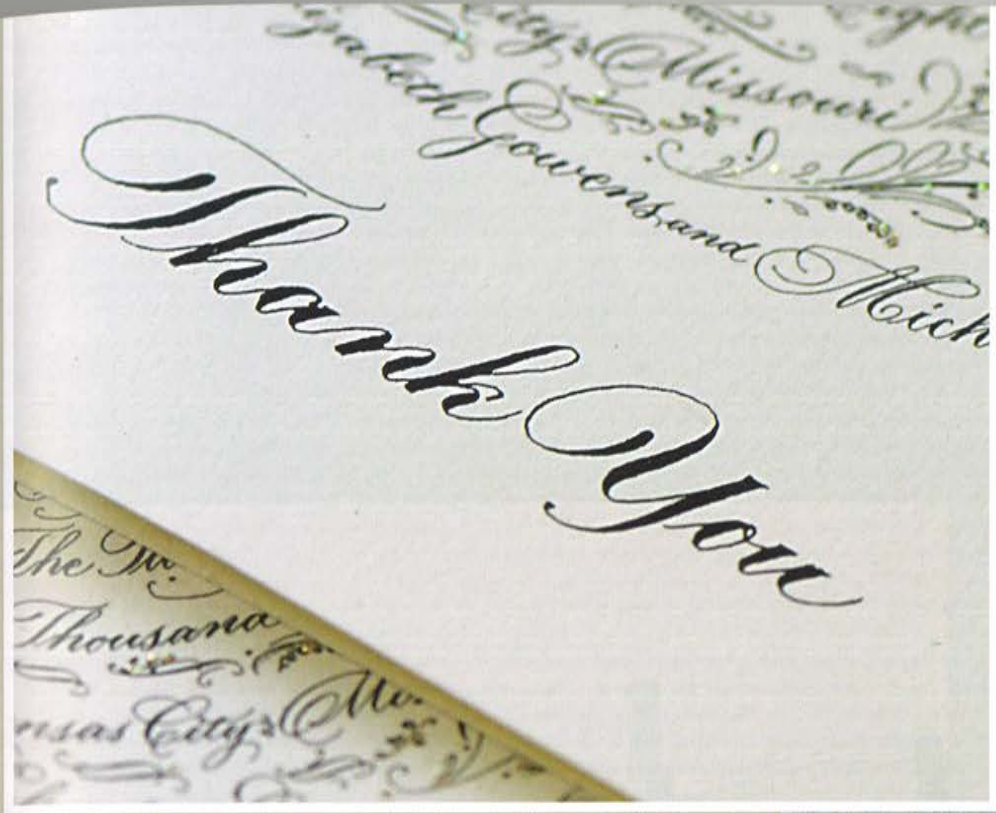 City, Missouri
Gowens, and Mich
Thank You
The
Thousand
nsas City, Mo.